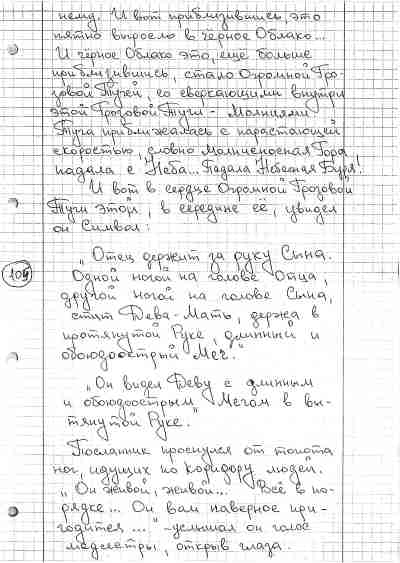 нему. И вот приблизившись, это
пятно выросло в чёрное Облако...
И чёрное Облако это, ещё больше
приблизившись, стало Огромной Гро-
зовой Тучей, со сверкающими внутри
этой Грозовой Тучи - Молниями.
Туча приближалась с нарастающей
скоростью, словно Молниеносная Гора,
падала с Неба... Падала Небесная Буря!
И вот в сердце Огромной Грозовой
Тучи этой, в середине её, увидел
он Символ:
„Отец держит за руку Сына.
Одной ногой на голове Отца,
109
другой ногой на голове Сына,
стоит Дева-Мать, держа в
протянутой Руке, длинный и
обоюдоострый Меч."
„Он видел Деву с длинным
и обоюдоострым Мечом в вы-
тянутой Руке."
Посланник проснулся от топота
ног, идущих по коридору людей.
„Он живой, живой... Всё в по-
рядке... Он вам наверное при-
годится..." - услышал он голос
медсестры, открыв глаза.